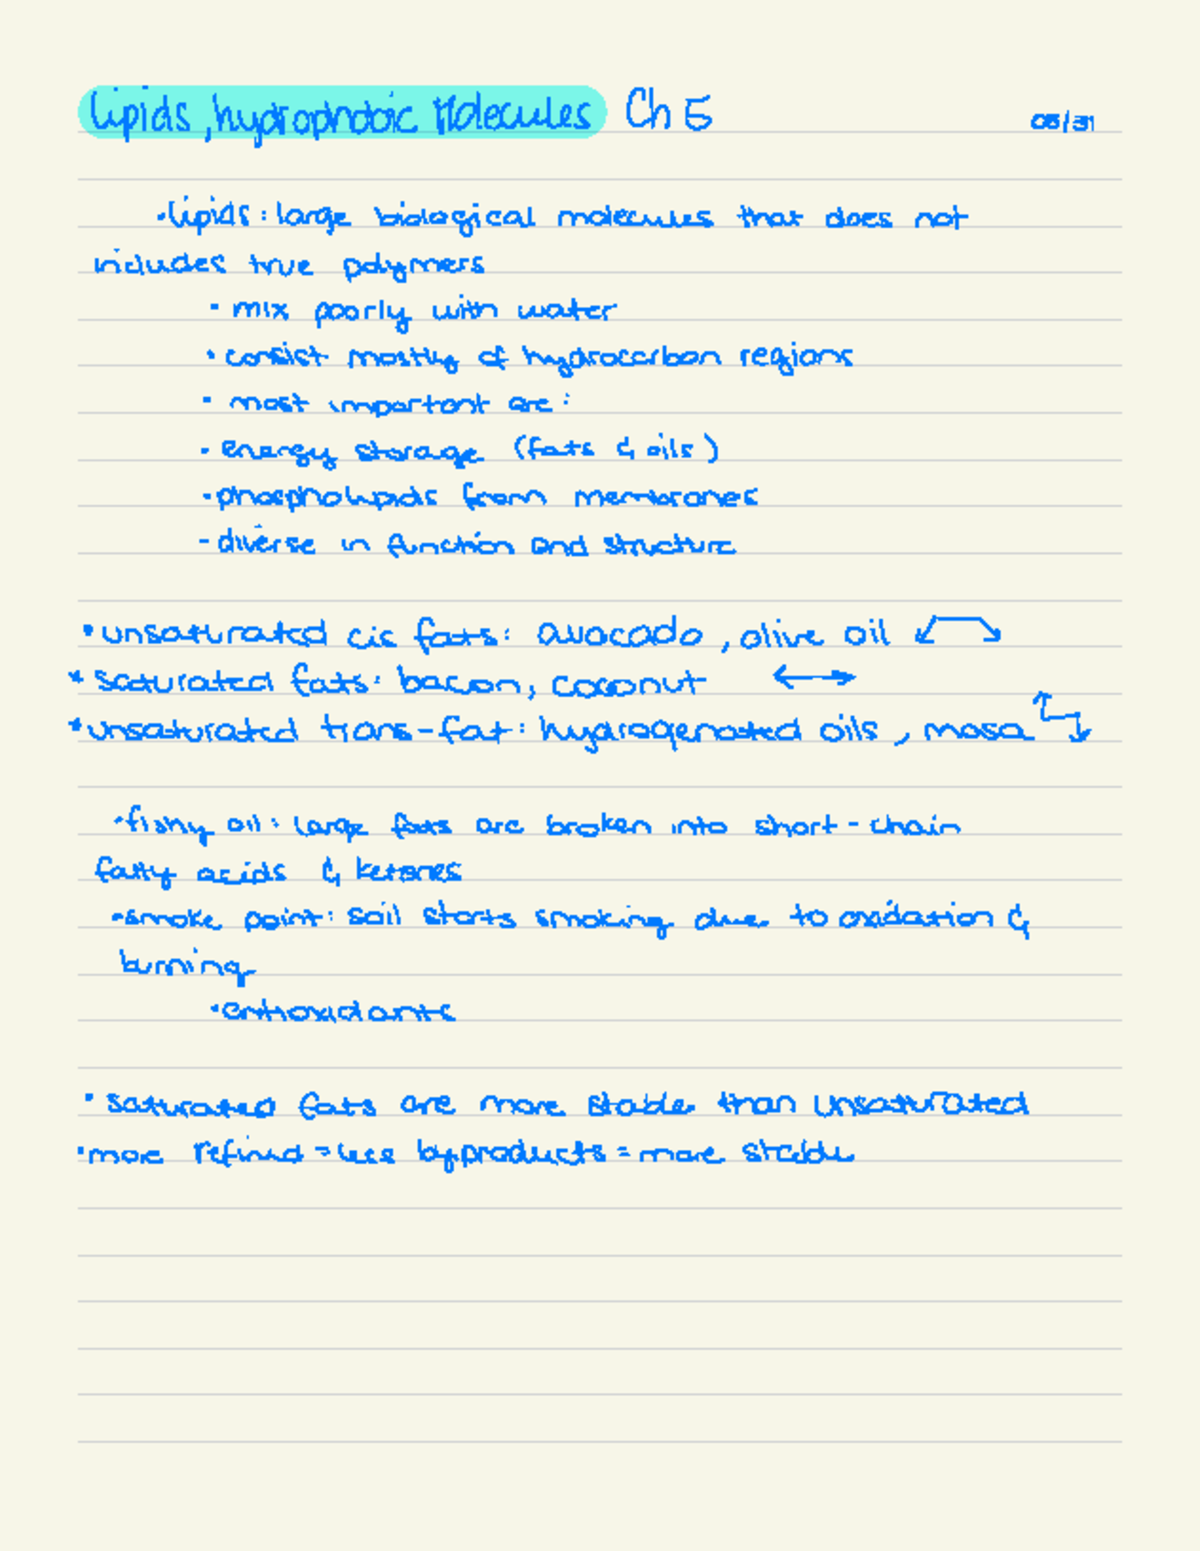 Lipids, hydrophobic Molecules Ch 5 05/31
• Lipids: large biological molecules that does not
includes true polymers
• mix poorly with water
• consist mostly of hydrocarbon regions
• most important are:
• energy storage (fats & oils)
• phospholipids from membranes
- diverse in function and structure
• unsaturated cic fats: avocado, olive oil
* saturated fats: bacon, coconut
* unsaturated trans-fat: hydrogenated oils, masa
• fishy oil: large fats are broken into short-chain
fatty acids & ketones
• smoke point: soil starts smoking due to oxidation &
burning
• antioxidants
• saturated fats are more stable than unsaturated
• more refined = less byproducts = more stable